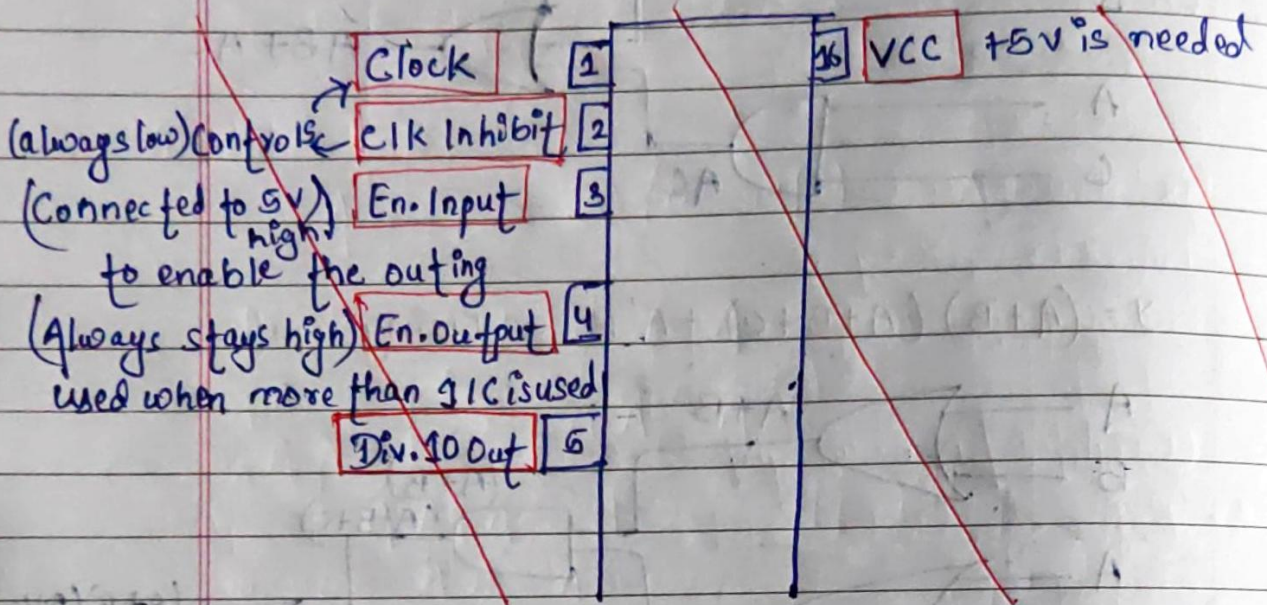 Clock 1 16 VCC +5V is needed
(always low) Controls Clk Inhibit 2
(Connected to 5V) En. Input 3
high
to enable the outing
(Always stays high) En. Output 4
used when more than 1 IC is used
Div. 10 Out 5